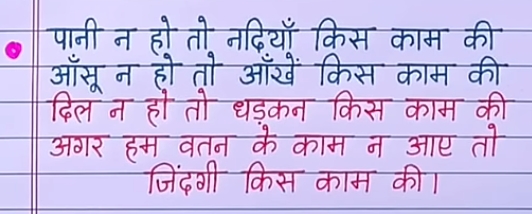 पानी न हो तो नदियाँ किस काम की
आँसू न हो तो आँखें किस काम की
दिल न हो तो धड़कन किस काम की
अगर हम वतन के काम न आए तो
जिंदगी किस काम की।